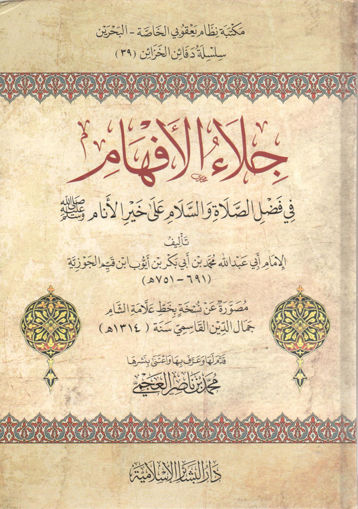 مكتبة نظام يعقوبي الخاصة - البحرين
سلسلة دفائن الخزائن (٣٩)
جلاء الأفهام
في فضل الصلاة والسلام على خير الأنام ﷺ
تأليف
الإمام أبي عبد الله محمد بن أبي بكر بن أيوب ابن قيم الجوزية
(٦٩١ - ٧٥١هـ)
مصورة عن نسخة بخط علامة الشام
جمال الدين القاسمي سنة (١٣١٤هـ)
قدم لها وعرف بها واعتنى بنشرها
محمد بن ناصر العجمي
دار البشائر الإسلامية